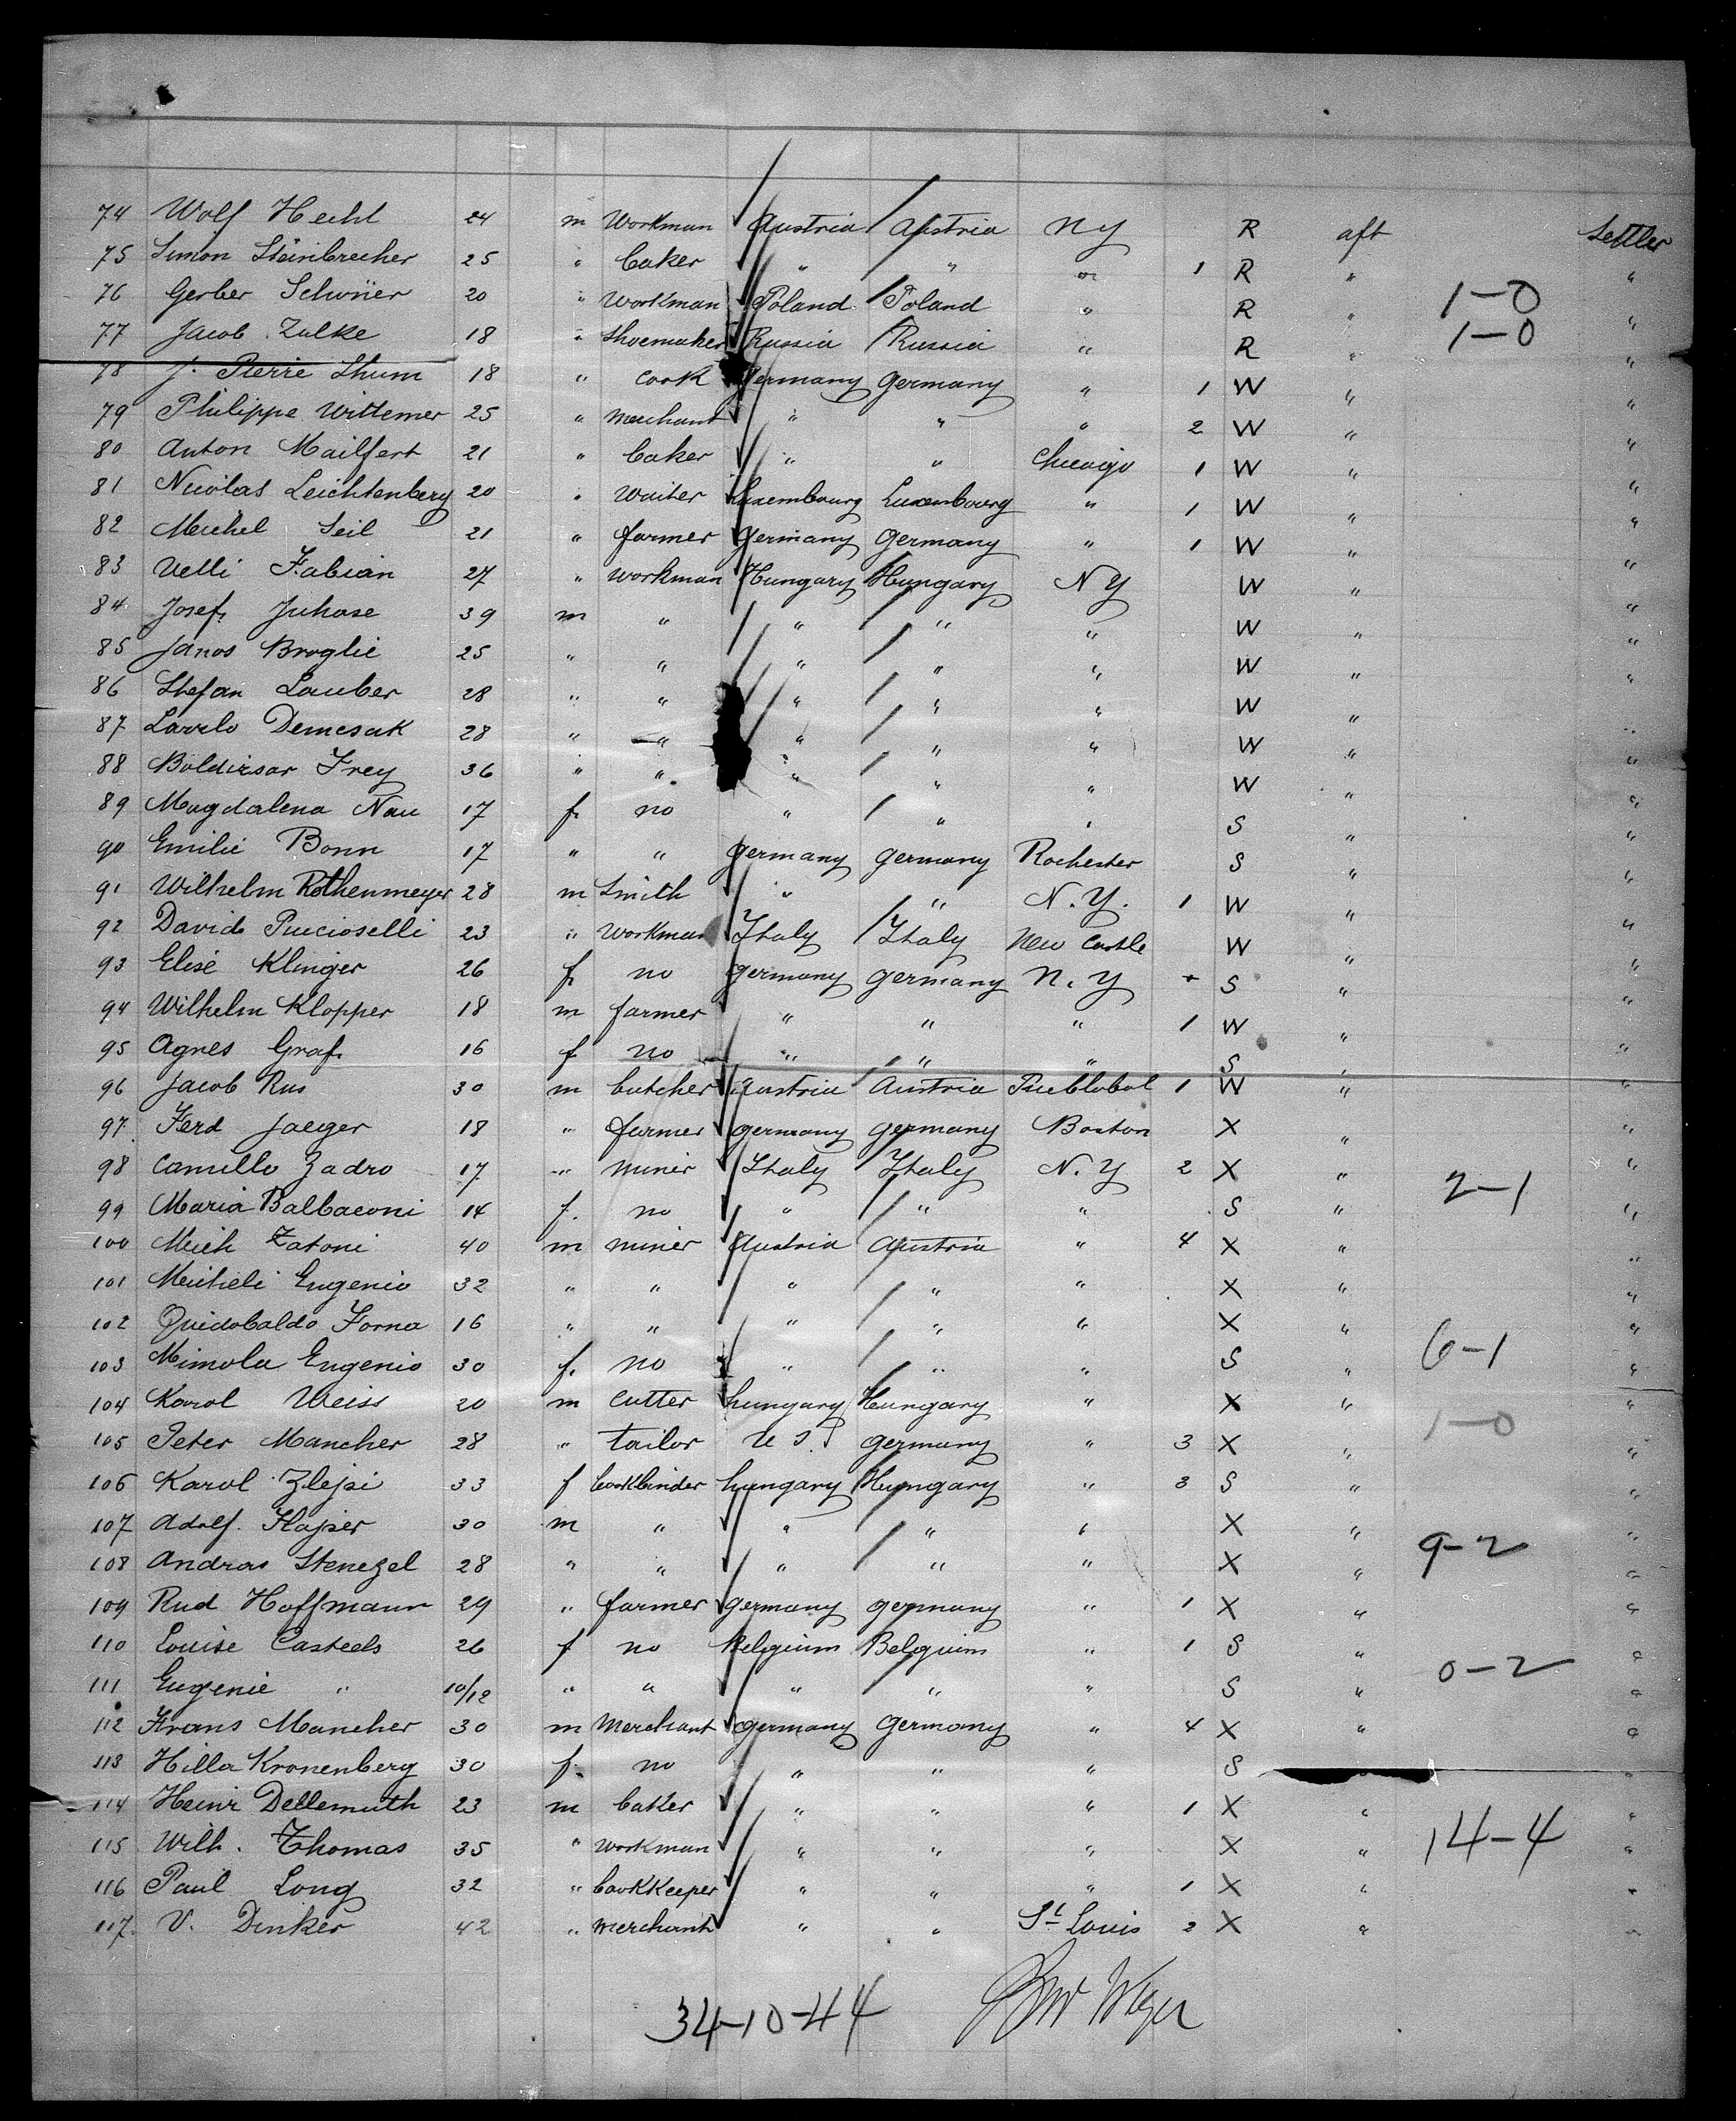 74 Wolf Hechl 24 m Workman Austria Austria NY R aft Settler
75 Simon Steinbrecher 25 " baker " " " 1 R " "
76 Gerber Schvier 20 " Workman Poland Poland " R " 1-0 "
77 Jacob Zulke 18 " Shoemaker Russia Russia " R " 1-0 "
78 J. Pierre Thum 18 " cook Germany Germany " 1 W " "
79 Philippe Wittemer 25 " merchant " " " 2 W " "
80 Anton Mailfert 21 " baker " " Chicago 1 W " "
81 Nicolas Leichtenberg 20 " waiter Luxembourg Luxembourg " 1 W " "
82 Michel Seil 21 " farmer Germany Germany " 1 W " "
83 Uelli Fabian 27 " workman Hungary Hungary NY W " "
84 Josef Juhase 39 m " " " " W " "
85 Janos Broglie 25 " " " " " W " "
86 Stefan Lauber 28 " " " " " W " "
87 Lavzlo Demcsak 28 " " " " " W " "
88 Boldizsar Frey 36 " " " " " W " "
89 Magdalena Nau 17 f. no " " " S " "
90 Emilie Bonn 17 " " Germany Germany Rochester S " "
91 Wilhelm Rothenmeyer 28 m Smith " " N.Y. 1 W " "
92 Davide Pucioselli 23 " workman Italy Italy New Castle W " "
93 Elise Klinger 26 f. no Germany Germany N.Y + S " "
94 Wilhelm Klopper 18 m farmer " " " 1 W " "
95 Agnes Graf 16 f no " " " S " "
96 Jacob Rus 30 m butcher Austria Austria Pueblobol 1 W " "
97 Ferd Jaeger 18 " farmer Germany Germany Boston X " "
98 Camillo Zadro 17 " miner Italy Italy N.Y 2 X " 2-1 "
99 Maria Balbaconi 14 f. no " " " S " "
100 Mich Zatoni 40 m miner Austria Austria " 4 X " "
101 Micheli Eugenio 32 " " " " " X " "
102 Quidobaldo Forna 16 " " " " " X " "
103 Mimola Eugenio 30 f. no " " " S " 6-1 "
104 Karol Weiss 20 m cutter hungary Hungary " X " "
105 Peter Mancher 28 " tailor U S. Germany " 3 X " 1-0 "
106 Karol Zlejsi 33 f bookbinder hungary Hungary " 3 S " "
107 Adolf Hajser 30 m " " " " X " "
108 Andras Stenezel 28 " " " " " X " 9-2 "
109 Rud Hoffmann 29 " farmer Germany Germany " 1 X " "
110 Louise Casteels 26 f no Belgium Belgium " 1 S " "
111 Eugenie " 10/12 " " " " " S " 0-2 "
112 Frans Mancher 30 m Merchant Germany Germany " 4 X " "
113 Hilla Kronenberg 30 f. no " " " S "
114 Heinr Dellemuth 23 m baker " " " 1 X " "
115 Wilh. Thomas 35 " workman " " " X " 14-4 "
116 Paul Long 32 " bookkeeper " " " 1 X " "
117. V. Dinker 42 " merchant " " St Louis 2 X " "
34-10-44